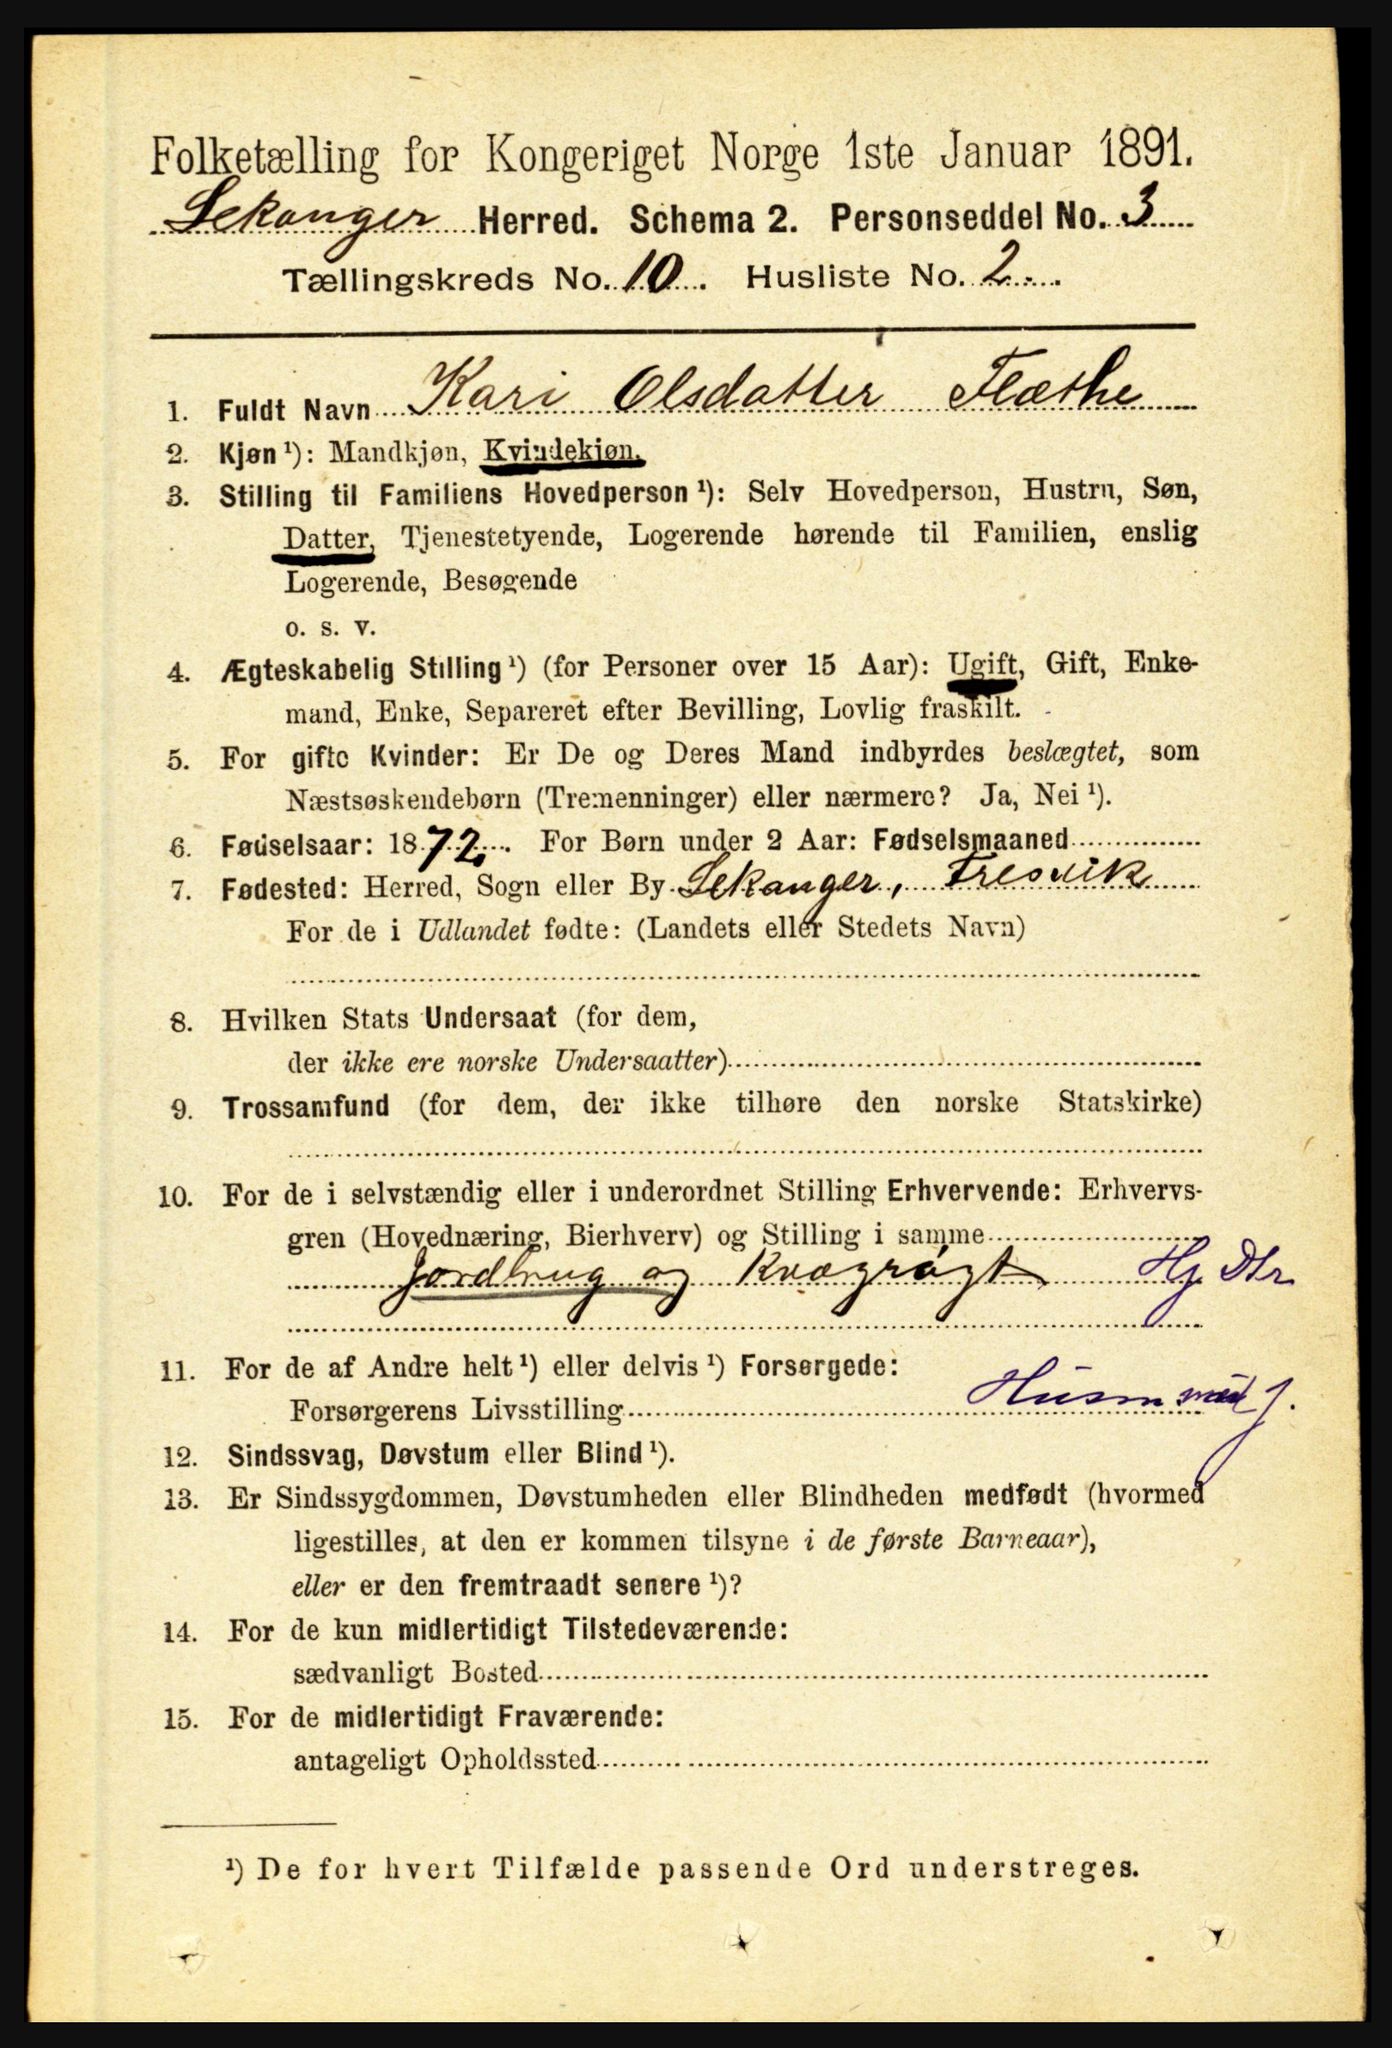 Folketælling for Kongeriget Norge 1ste Januar 1891.
Lekanger Herred. Schema 2. Personseddel No. 3
Tællingskreds No. 10. Husliste No. 2
1. Fuldt Navn Kari Olsdatter Flæthe
2. Kjøn ¹): Mandkjøn, Kvindekjøn.
3. Stilling til Familiens Hovedperson ¹): Selv Hovedperson, Hustru, Søn,
Datter, Tjenestetyende, Logerende hørende til Familien, enslig
Logerende, Besøgende
o. s. v.
4. Ægteskabelig Stilling ¹) (for Personer over 15 Aar): Ugift, Gift, Enke-
mand, Enke, Separeret efter Bevilling, Lovlig fraskilt.
5. For gifte Kvinder: Er De og Deres Mand indbyrdes beslægtet, som
Næstsøskendebørn (Tremenninger) eller nærmere? Ja, Nei ¹).
6. Fødselsaar: 1872. For Børn under 2 Aar: Fødselsmaaned
7. Fødested: Herred, Sogn eller By Lekanger, Fresvik
For de i Udlandet fødte: (Landets eller Stedets Navn)
8. Hvilken Stats Undersaat (for dem,
der ikke ere norske Undersaatter)
9. Trossamfund (for dem, der ikke tilhøre den norske Statskirke)
10. For de i selvstændig eller i underordnet Stilling Erhvervende: Erhvervs-
gren (Hovednæring, Bierhverv) og Stilling i samme
Jordbrug og Kvægrøgt Hj. Dtr
11. For de af Andre helt ¹) eller delvis ¹) Forsørgede:
Forsørgerens Livsstilling Husm med J.
12. Sindssvag, Døvstum eller Blind ¹).
13. Er Sindssygdommen, Døvstumheden eller Blindheden medfødt (hvormed
ligestilles, at den er kommen tilsyne i de første Barneaar),
eller er den fremtraadt senere ¹)?
14. For de kun midlertidigt Tilstedeværende:
sædvanligt Bosted
15. For de midlertidigt Fraværende:
antageligt Opholdssted
¹) De for hvert Tilfælde passende Ord understreges.